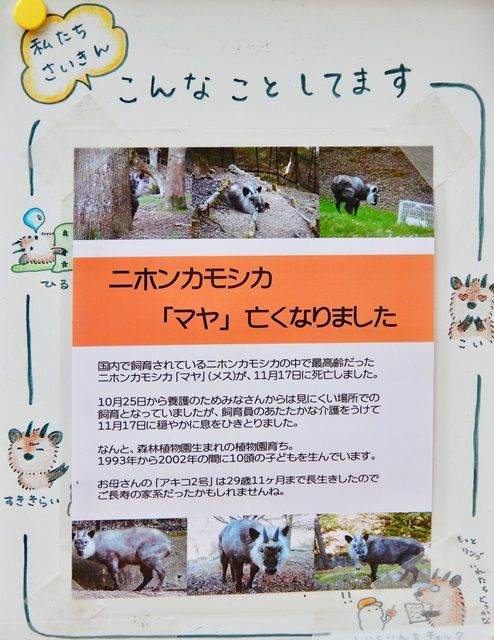 私たち
さいきん
こんなことしてます
ニホンカモシカ
「マヤ」亡くなりました
国内で飼育されているニホンカモシカの中で最高齢だった
ニホンカモシカ「マヤ」(メス)が、11月17日に死亡しました。
10月25日から養護のためみなさんからは見にくい場所での
飼育となっていましたが、飼育員のあたたかな介護をうけて
11月17日に穏やかに息をひきとりました。
なんと、森林植物園生まれの植物園育ち。
1993年から2002年の間に10頭の子どもを生んでいます。
お母さんの「アキコ2号」は29歳11ヶ月まで長生きしたので
ご長寿の家系だったかもしれませんね。
ひる
こい
すききらい
もっと
リンゴ
!!